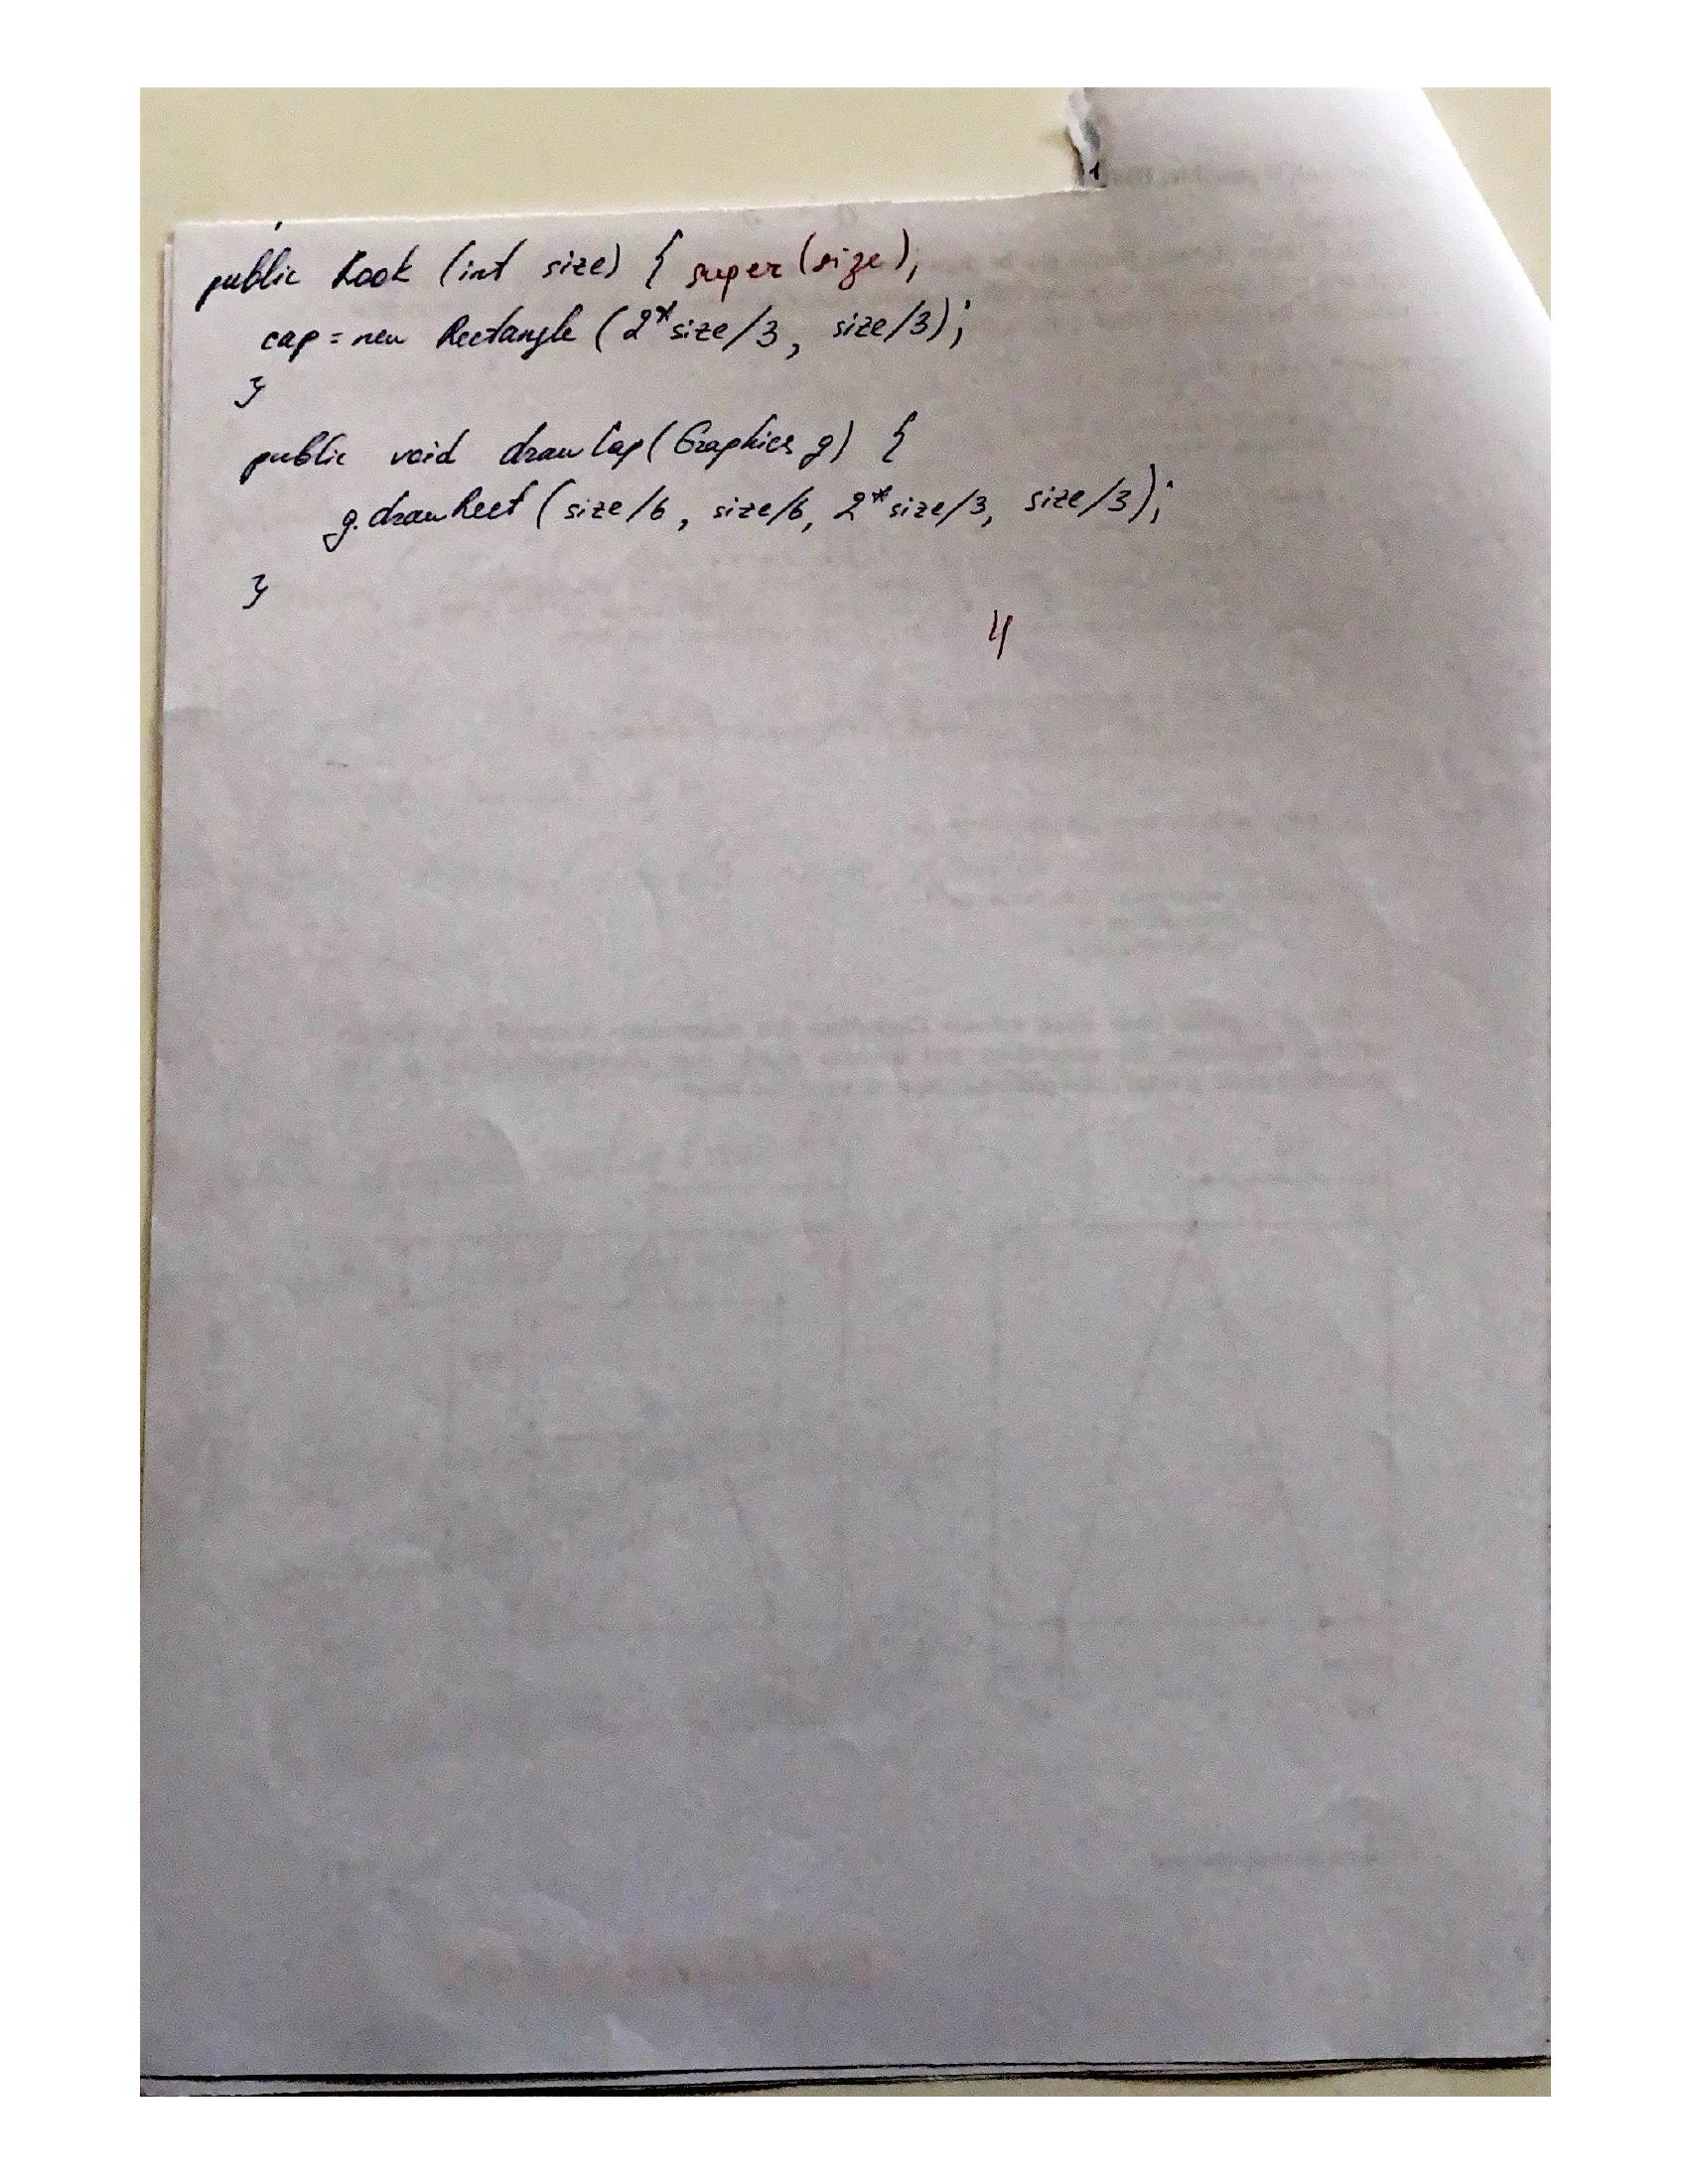 public Rook (int size) { super (size);
cap = new Rectangle (2*size/3, size/3);
}
public void drawCap (Graphics g) {
g.drawRect (size/6, size/6, 2*size/3, size/3);
}
4